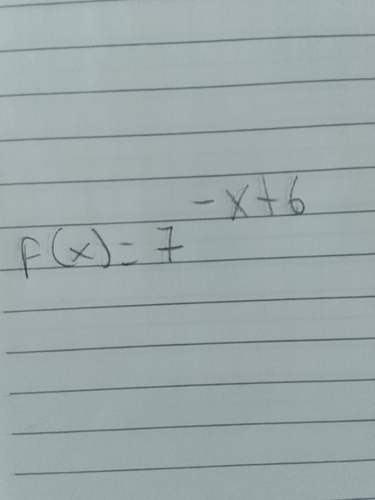 f(x) = 7^{-x+6}